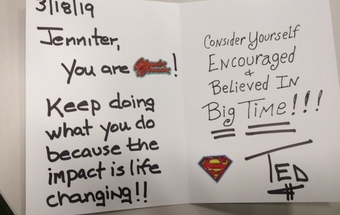 3/18/19
Jennifer,
You are Wonder Woman!
Keep doing
what you do
because the
impact is life
changing!!
Consider Yourself
Encouraged
&
Believed In
Big Time!!!
TED